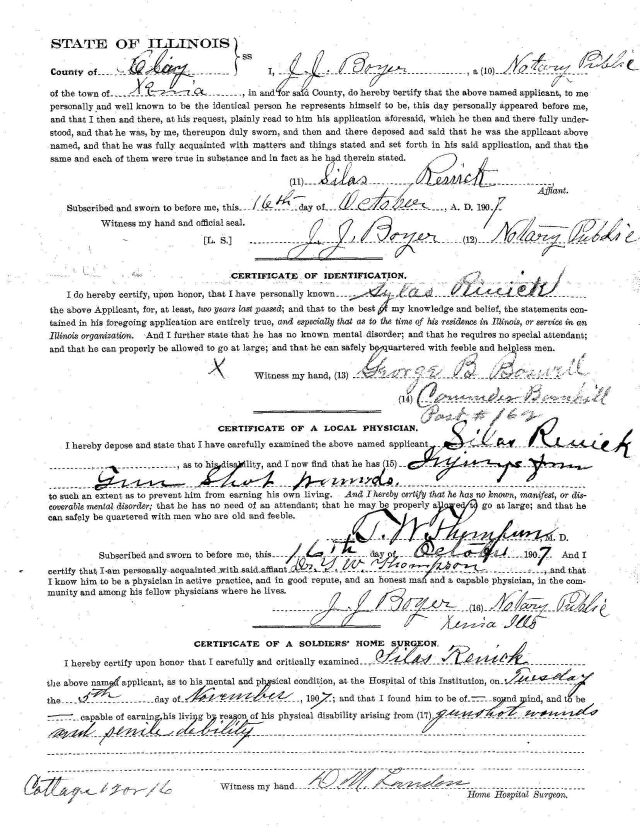 STATE OF ILLINOIS } ss
County of Clay I, J. J. Boyer, a (10) Notary Public
of the town of Xenia, in and for said County, do hereby certify that the above named applicant, to me
personally and well known to be the identical person he represents himself to be, this day personally appeared before me,
and that I then and there, at his request, plainly read to him his application aforesaid, which he then and there fully under-
stood, and that he was, by me, thereupon duly sworn, and then and there deposed and said that he was the applicant above
named, and that he was fully acquainted with matters and things stated and set forth in his said application, and that the
same and each of them were true in substance and in fact as he had therein stated.
(11) Silas Renick
Affiant.
Subscribed and sworn to before me, this 16th day of October, A. D. 1907.
Witness my hand and official seal.
[L. S.] J. J. Boyer (12) Notary Public
CERTIFICATE OF IDENTIFICATION.
I do hereby certify, upon honor, that I have personally known Sylas Renick
the above Applicant, for, at least, two years last passed; and that to the best of my knowledge and belief, the statements con-
tained in his foregoing application are entirely true, and especially that as to the time of his residence in Illinois, or service in an
Illinois organization. And I further state that he has no known mental disorder; and that he requires no special attendant;
and that he can properly be allowed to go at large; and that he can safely be quartered with feeble and helpless men.
X Witness my hand, (13) George B Boswell
(14) Commander
Post # 162
CERTIFICATE OF A LOCAL PHYSICIAN.
I hereby depose and state that I have carefully examined the above named applicant Silas Renick
, as to his disability, and I now find that he has (15) Injurys from
Gun Shot wounds.
to such an extent as to prevent him from earning his own living. And I hereby certify that he has no known, manifest, or dis-
coverable mental disorder; that he has no need of an attendant; that he may be properly allowed to go at large; and that he
can safely be quartered with men who are old and feeble.
T. W. Thompson M. D.
Subscribed and sworn to before me, this 16th day of October 1907. And I
certify that I am personally acquainted with said affiant Dr. T. W Thompson, and that
I know him to be a physician in active practice, and in good repute, and an honest man and a capable physician, in the com-
munity and among his fellow physicians where he lives.
J. J. Boyer (16) Notary Public
Xenia Ills
CERTIFICATE OF A SOLDIERS' HOME SURGEON.
I hereby certify upon honor that I carefully and critically examined Silas Renick
the above named applicant, as to his mental and physical condition, at the Hospital of this Institution, on Tuesday
the 5th day of November, 1907; and that I found him to be of — sound mind, and to be
— capable of earning his living by reason of his physical disability arising from (17) gunshot wounds
and senile debility
Witness my hand D M. Landon
Home Hospital Surgeon.
Cottage 12 or 16